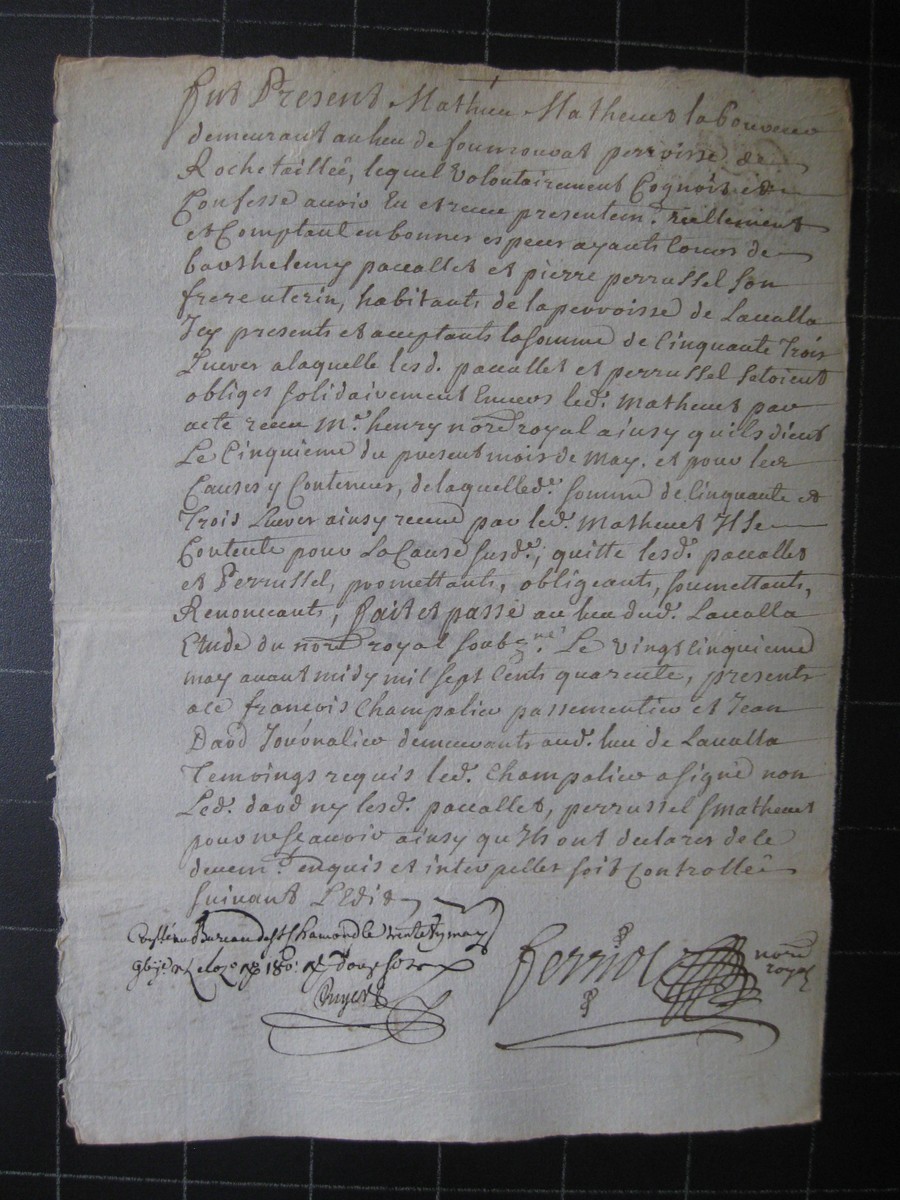 fut Present Mathieu Matheuet laboureur
demeurant au lieu de perroisse de
Rochetailleé, lequel volontairement Cognoit et
Confesse avoir Eu et receu presentemt. réellement
et Comptant en bonnes especes ayants Cours de
barthelemy pacallet et pierre perrussel son
frere uterin, habitants de la perroisse de Lavalla
Icy presents et acceptants la somme de Cinquante Trois
Livres a laquelle lesd. pacallet et perrussel setoient
obliges solidairement Envers led. Matheuet par
acte receu Me. henry nore royal ainsy quils dient
Le Cinquieme du present mois de May. et pour les
Causes y Contenues, de laquelled. somme de Cinquante et
Trois Livres ainsy receue par led. Matheuet Il se
Contente pour La Cause susde., quitte lesd. pacallet
et Perrussel, promettants, obligeants, soumettants,
Renoncants, fait et passé au lieu dud. Lavalla
Etude du nore royal soubzne. Le vingt Cinquieme
may avant midy mil sept Cents quarente, presents
a ce francois Champalier passementier et Jean
Daod Journalier demeurants aud. lieu de Lavalla
Temoings requis led. Champalier a signé non
Led. daod ny lesd. pacallet, perrussel & matheuet
pour ne scavoir ainsy qu'Ils ont declares de ce
deuem. enquis et interpelles soit Controlleé
suivant L'Edit
Bureau de St Chamond le may
ferriol nore
royal